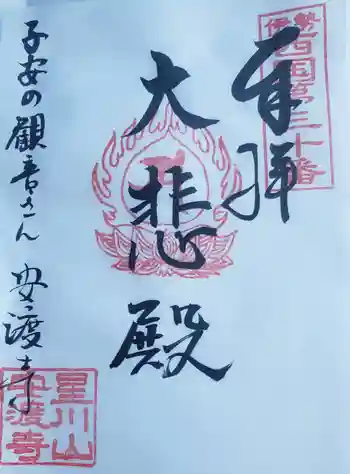 奉拝
伊勢西国第三十番
大悲殿
子安の観音さん 安渡寺
星川山
安渡寺